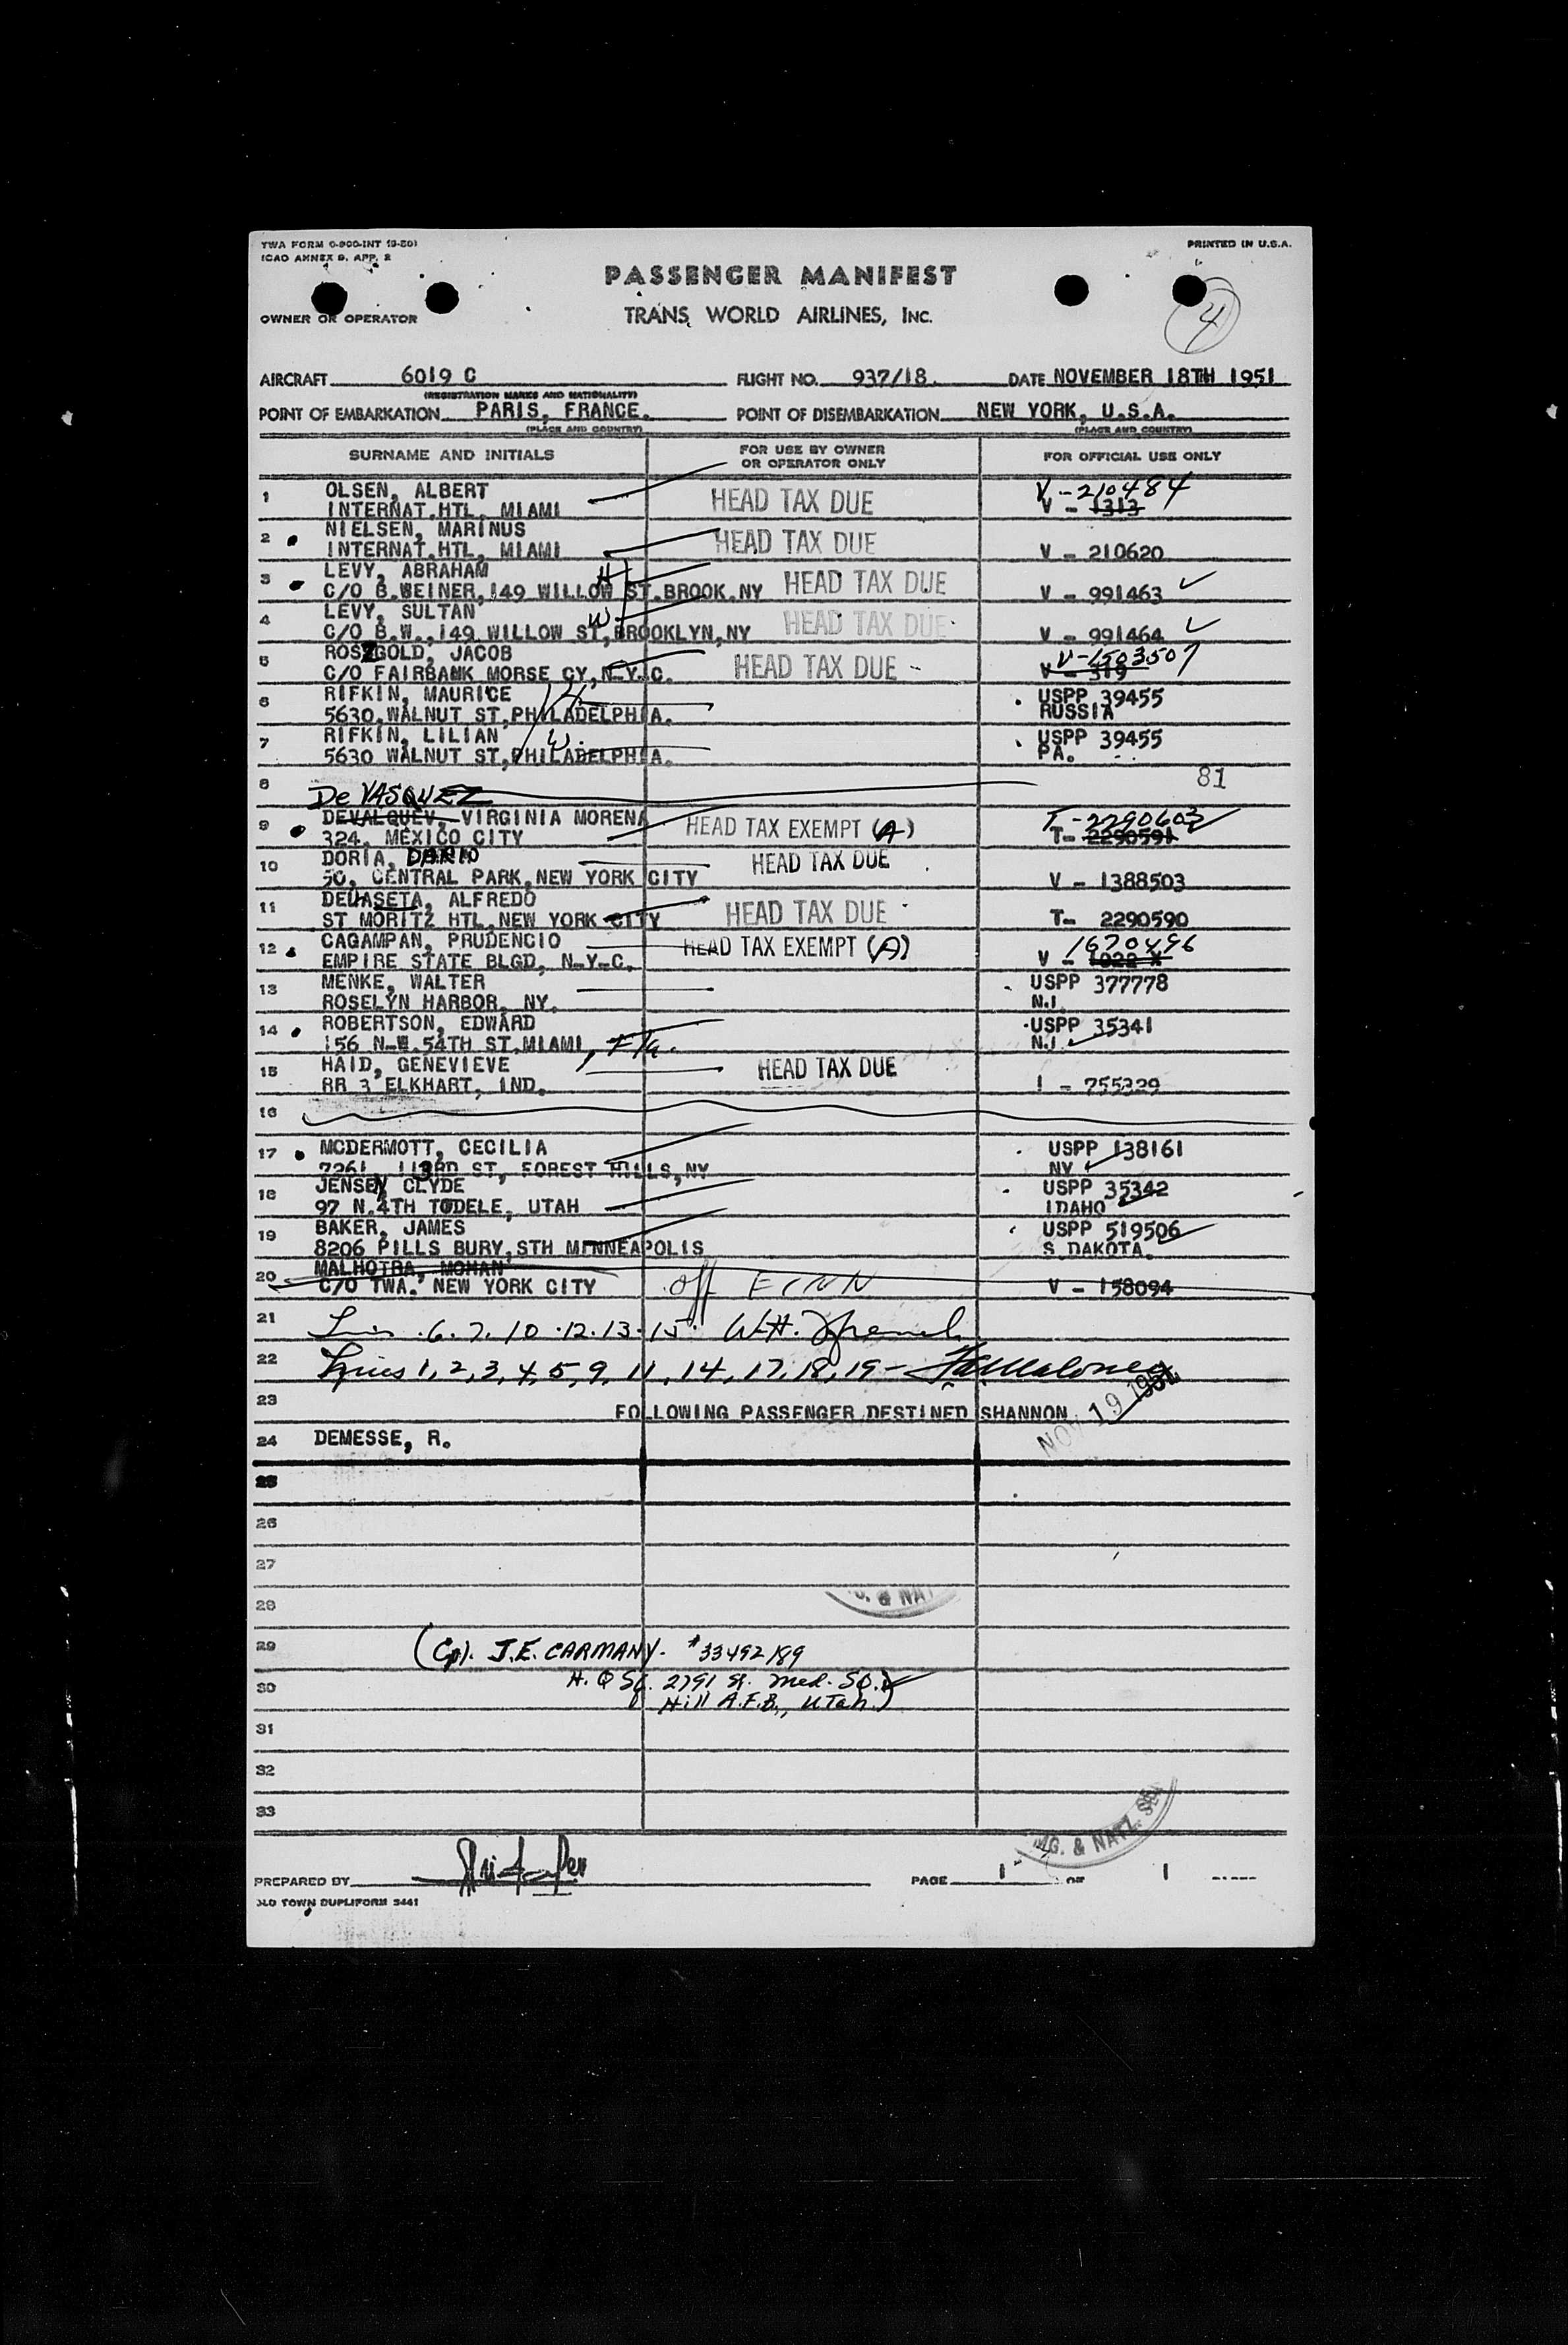 TWA FORM 0-900-INT (9-50)
PRINTED IN U.S.A.
ICAO ANNEX 9. APP. 2
PASSENGER MANIFEST
OWNER OR OPERATOR
TRANS WORLD AIRLINES, INC.
4
AIRCRAFT 6019 C FLIGHT NO. 937/18. DATE NOVEMBER 18TH 1951
(REGISTRATION MARKS AND NATIONALITY)
POINT OF EMBARKATION PARIS, FRANCE. POINT OF DISEMBARKATION NEW YORK, U.S.A.
(PLACE AND COUNTRY) (PLACE AND COUNTRY)
SURNAME AND INITIALS FOR USE BY OWNER OR OPERATOR ONLY FOR OFFICIAL USE ONLY
1 OLSEN, ALBERT HEAD TAX DUE V - 210484
INTERNAT.HTL, MIAMI V - 1313
2 NIELSEN, MARINUS HEAD TAX DUE
INTERNAT.HTL, MIAMI V - 210620
3 LEVY, ABRAHAM H HEAD TAX DUE
C/O B.WEINER, 149 WILLOW ST.BROOK.NY V - 991463
4 LEVY, SULTAN W HEAD TAX DUE
C/O B.W., 149 WILLOW ST, BROOKLYN, NY V - 991464
5 ROSZGOLD, JACOB HEAD TAX DUE V-1503507
C/O FAIRBANK MORSE CY, N-Y-C. V - 319
6 RIFKIN, MAURICE H USPP 39455
5630 WALNUT ST, PHILADELPHIA. RUSSIA
7 RIFKIN, LILIAN W. USPP 39455
5630 WALNUT ST, PHILADELPHIA. PA.
8 81
De VASQUEZ
9 DEVALQUEV, VIRGINIA MORENA HEAD TAX EXEMPT (A) T-2290603
324, MEXICO CITY T- 2290591
10 DORIA, DARIO HEAD TAX DUE
50, CENTRAL PARK, NEW YORK CITY V - 1388503
11 DELLASETA, ALFREDO HEAD TAX DUE
ST MORITZ HTL, NEW YORK CITY T- 2290590
12 CAGAMPAN, PRUDENCIO HEAD TAX EXEMPT (A) 1670496
EMPIRE STATE BLGD, N-Y-C. V - 1022 X
13 MENKE, WALTER USPP 377778
ROSELYN HARBOR, NY. N.J.
14 ROBERTSON, EDWARD USPP 35341
156 N-W.54TH ST, MIAMI, Fla. N.J.
15 HAID, GENEVIEVE HEAD TAX DUE
RR 3 ELKHART, IND. I - 755329
16
17 MCDERMOTT, CECILIA USPP 138161
7261, 113RD ST, FOREST HILLS, NY NY
18 JENSEN CLYDE USPP 35342
97 N.4TH TODELE, UTAH IDAHO
19 BAKER, JAMES USPP 519506
8206 PILLS BURY, STH MINNEAPOLIS S.DAKOTA.
20 MALHOTRA, MOHAN
C/O TWA. NEW YORK CITY off V - 158094
21 6.7.10.12.13.15. W.H.
22 Lines 1, 2, 3, 4, 5, 9, 11, 14, 17, 18, 19 -
NOV 19 1951
23 FOLLOWING PASSENGER DESTINED SHANNON
24 DEMESSE, R.
25
26
27
28 & NAT
29 (Cpl. J.E. CARMANY. #33492189
30 H.Q Sq. 2791 Med. Sq.
Hill A.F.B., Utah.)
31
32
33
MG. & NATZ. SE
PREPARED BY PAGE 1 OF 1
OLD TOWN DUPLIFORM 5441